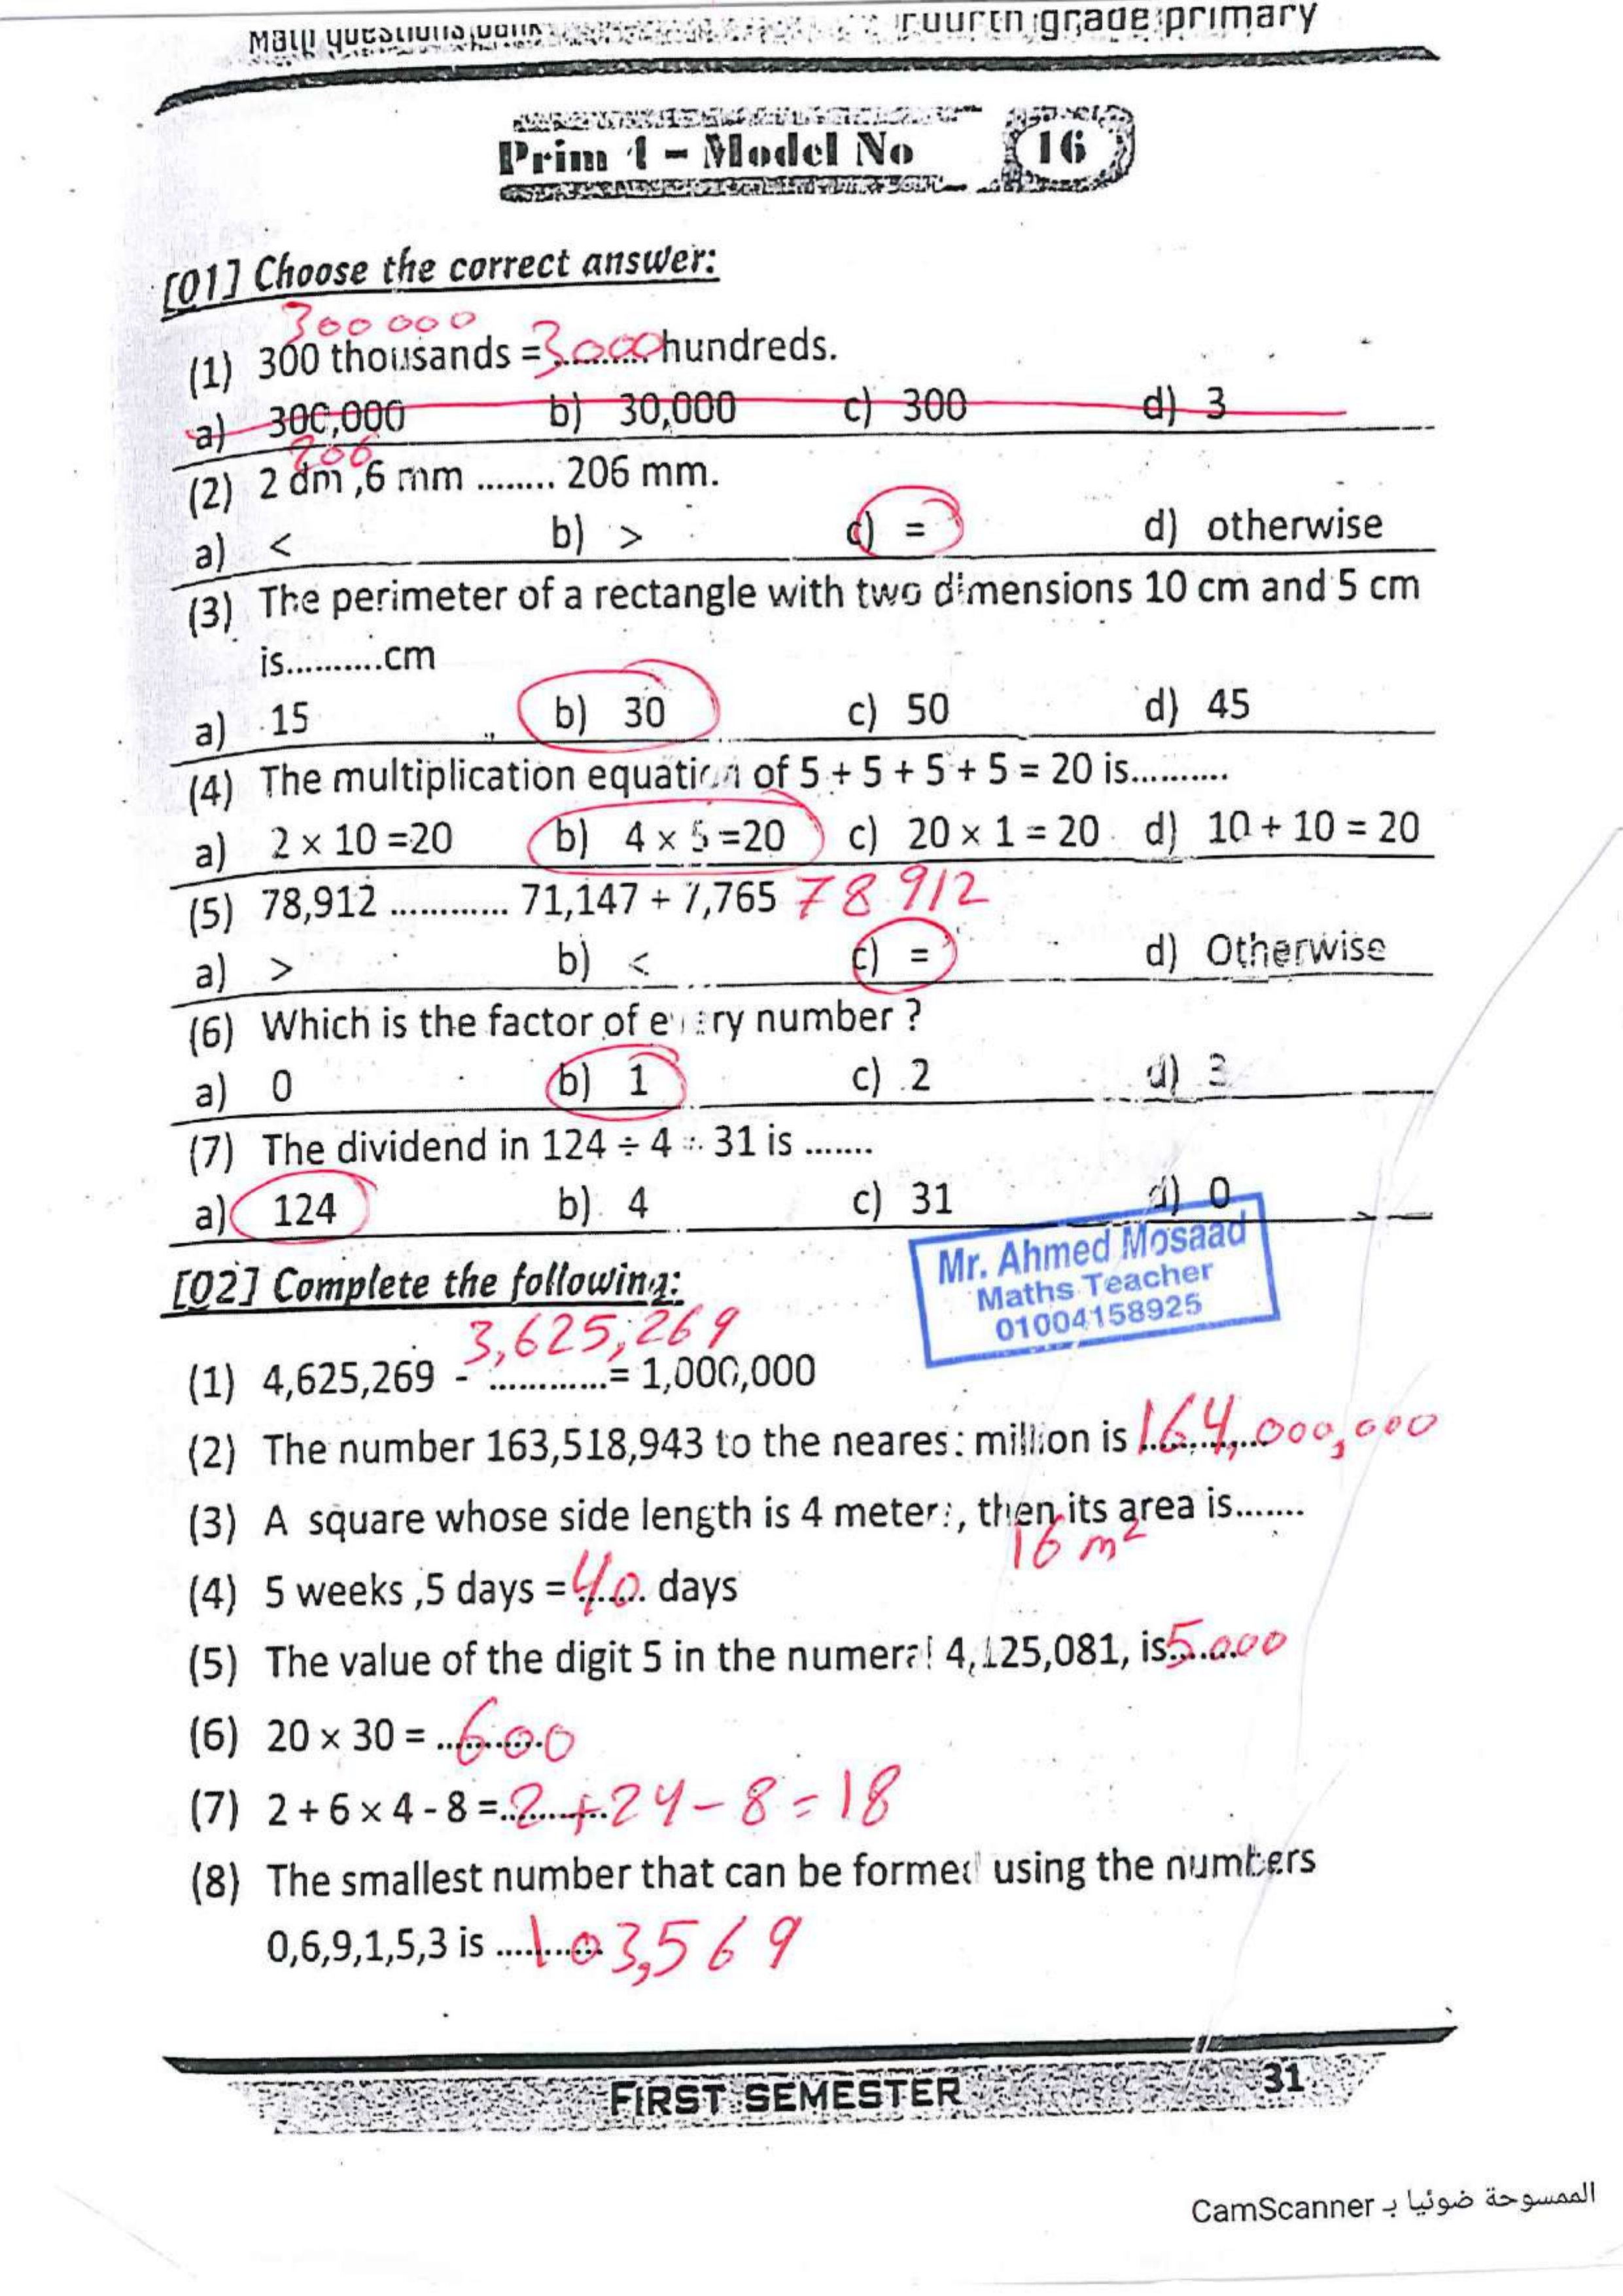 Math questions bank Fourth grade primary
Prim 4 - Model No 16
[01] Choose the correct answer:
300 000
(1) 300 thousands = 3000 hundreds.
a) 300,000 b) 30,000 c) 300 d) 3
206
(2) 2 dm ,6 mm ........ 206 mm.
a) < b) > c) = d) otherwise
(3) The perimeter of a rectangle with two dimensions 10 cm and 5 cm
is..........cm
a) 15 b) 30 c) 50 d) 45
(4) The multiplication equation of 5 + 5 + 5 + 5 = 20 is..........
a) 2 × 10 =20 b) 4 × 5 =20 c) 20 × 1 = 20 d) 10 + 10 = 20
(5) 78,912 ............ 71,147 + 7,765 78 912
a) > b) < c) = d) Otherwise
(6) Which is the factor of every number ?
a) 0 b) 1 c) 2 d) 3
(7) The dividend in 124 ÷ 4 = 31 is .......
a) 124 b) 4 c) 31 d) 0
Mr. Ahmed Mosaad
Maths Teacher
01004158925
[02] Complete the following:
3,625,269
(1) 4,625,269 - ............= 1,000,000
(2) The number 163,518,943 to the nearest million is 164,000,000
(3) A square whose side length is 4 meters, then its area is.......
16 m²
(4) 5 weeks ,5 days = 40 days
(5) The value of the digit 5 in the numeral 4,125,081, is 5000
(6) 20 × 30 = 600
(7) 2 + 6 × 4 - 8 = 2 + 24 - 8 = 18
(8) The smallest number that can be formed using the numbers
0,6,9,1,5,3 is 103,569
FIRST SEMESTER 31
الممسوحة ضوئيا بـ CamScanner